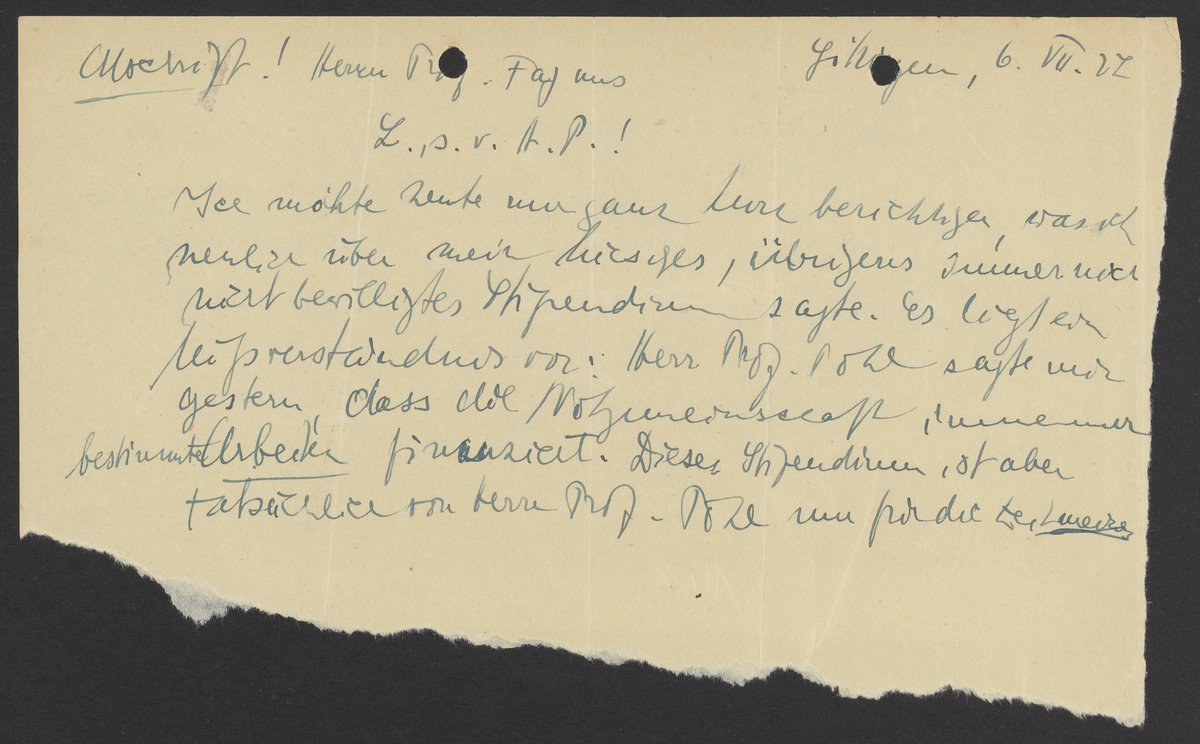 Abschrift! Herrn Prof. Fajans Göttingen, 6. VII. 27
L., s. v. H. P.!
Ich möchte heute nur ganz kurz berichtigen, was ich
neulich über mein hiesiges, übrigens immer noch
nicht bewilligtes Stipendium sagte. Es liegt ein
Mißverständnis vor: Herr Prof. Pohl sagte mir
gestern, dass die Notgemeinschaft immer nur
bestimmte Arbeiten finanziert. Dieses Stipendium ist aber
tatsächlich von Herrn Prof. Pohl nun für die Zeit meines